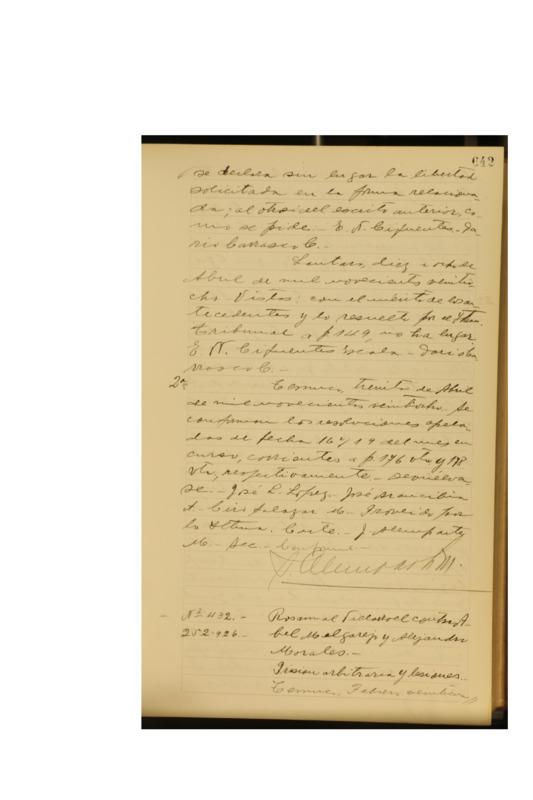 642
se declara sin lugar la libertad
solicitada en la forma relaciona-
da; al otrosi del escrito anterior, co-
mo se pide.- E. N. Cifuentes.- Da-
rio Carrasco C.-
Lautaro, diez i ocho de
Abril de mil novecientos veintio-
cho. Vistos: con el mérito de los an-
tecedentes y lo resuelto por el Iltmo.
Tribunal a f 149, no ha lugar.
E. N. Cifuentes Escala.- Dario Ca-
rrasco C.-
2a. Temuco, treinta de Abril
de mil novecientos veintiocho. Se
confirman las resoluciones apela-
das de fecha 16 y 19 del mes en
curso, corrientes a f 176 vta y 178
vta, respectivamente.- Devuelva-
se.- José L. Lopez.- José Arancibia
A. Ciro Salazar M.- Proveido por
la Iltma. Corte.- J. Alemparte
M.- Sec.- Conforme.-
Nº 1132.- Rosamal Vidal contra A-
252-926.- bel Melgarejo y Alejandro
Morales.-
Prision arbitraria y lesiones.-
Temuco, Febrero